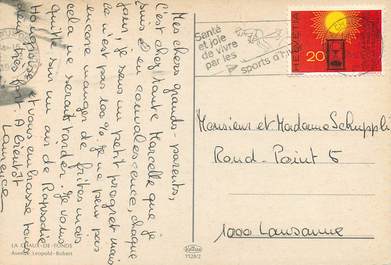 Mes chers grands-parents,
C'est chez tante Marcelle que je
suis en convalescence. Chaque
jour, je sens un petit progrès mais
ce n'est pas les % je ne peux pas
encore manger de frites mais
cela ne serait tarder. Je vous
quitte sur un air de Rapsodie
Hongroise et vous embrasse tous
deux très fort. A bientôt
Laurence
LA CHAUX-DE-FONDS
Avenue Léopold-Robert
1128/2
Santé
et joie
de vivre
par les
sports à l'
HELVETIA
20
Monsieur et Madame Schnuppli
Rond-Point 5
1000 Lausanne